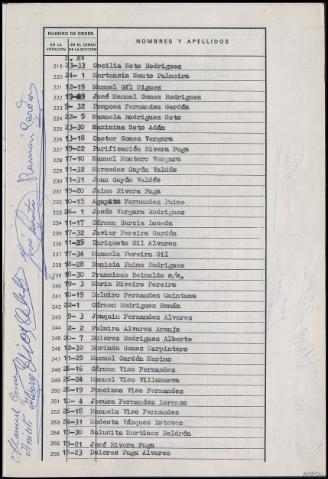 NUMERO DE ORDEN
NOMBRES Y APELLIDOS
EN LA VOTACION
EN EL CENSO DE LA SECCION
219 23-33 Cecilia Soto Rodriguez
220 24-1 Hortensia Souto Palmeira
221 12-19 Manuel Gil Migues
222 José Manuel Gomez Rodriguez
223 9-32 Pomposa Fernandez Gardón
224 22-5 Manuela Rodriguez Soto
225 23-30 Maximina Soto Adán
226 13-18 Castor Gomez Vergara
227 19-22 Purificación Rivera Puga
228 17-10 Manuel Montero Vergara
229 11-32 Mercedes Gayón Valdés
230 11-31 Juan Gayón Valdés
231 19-20 Jaime Rivera Puga
232 10-15 Agapita Fernandez Puime
233 26-1 Jesús Vergara Rodriguez
234 11-17 Cármen Garcia Loceda
235 17-32 Javier Pereira Gardón
236 11-35 Enriqueta Gil Alvarez
237 17-34 Manuela Pereira Gil
238 Rodriguez
239 18-30 Francisco Reinaldo s/s.
240 19-3 Maria Riveiro Pereira
241 10-19 Delmiro Fernandez Quintana
242 22-1 Cármen Rodriguez Román
243 9-3 Joaquin Fernandez Alvarez
244 2-2 Palmira Alvarez Araujo
245 20-7 Dolores Rodriguez Alberte
246 12-32 Dorinda Gomez Carpintero
247 11-25 Manuel Gardón Merino
248 26-16 Cármen Viso Fernandez
249 26-24 Manuel Viso Villanueva
250 26-19 Viso Fernandez
251 10-4 Jesusa Fernandez Lorenzo
252 26-18 Manuela Viso Fernandez
253 24-31 Modesta Vázquez Estevez
254 15-30 Saludita Martinez Beldrón
255 19-21 José Rivera Puga
256 18-23 Dolores Puga Alvarez